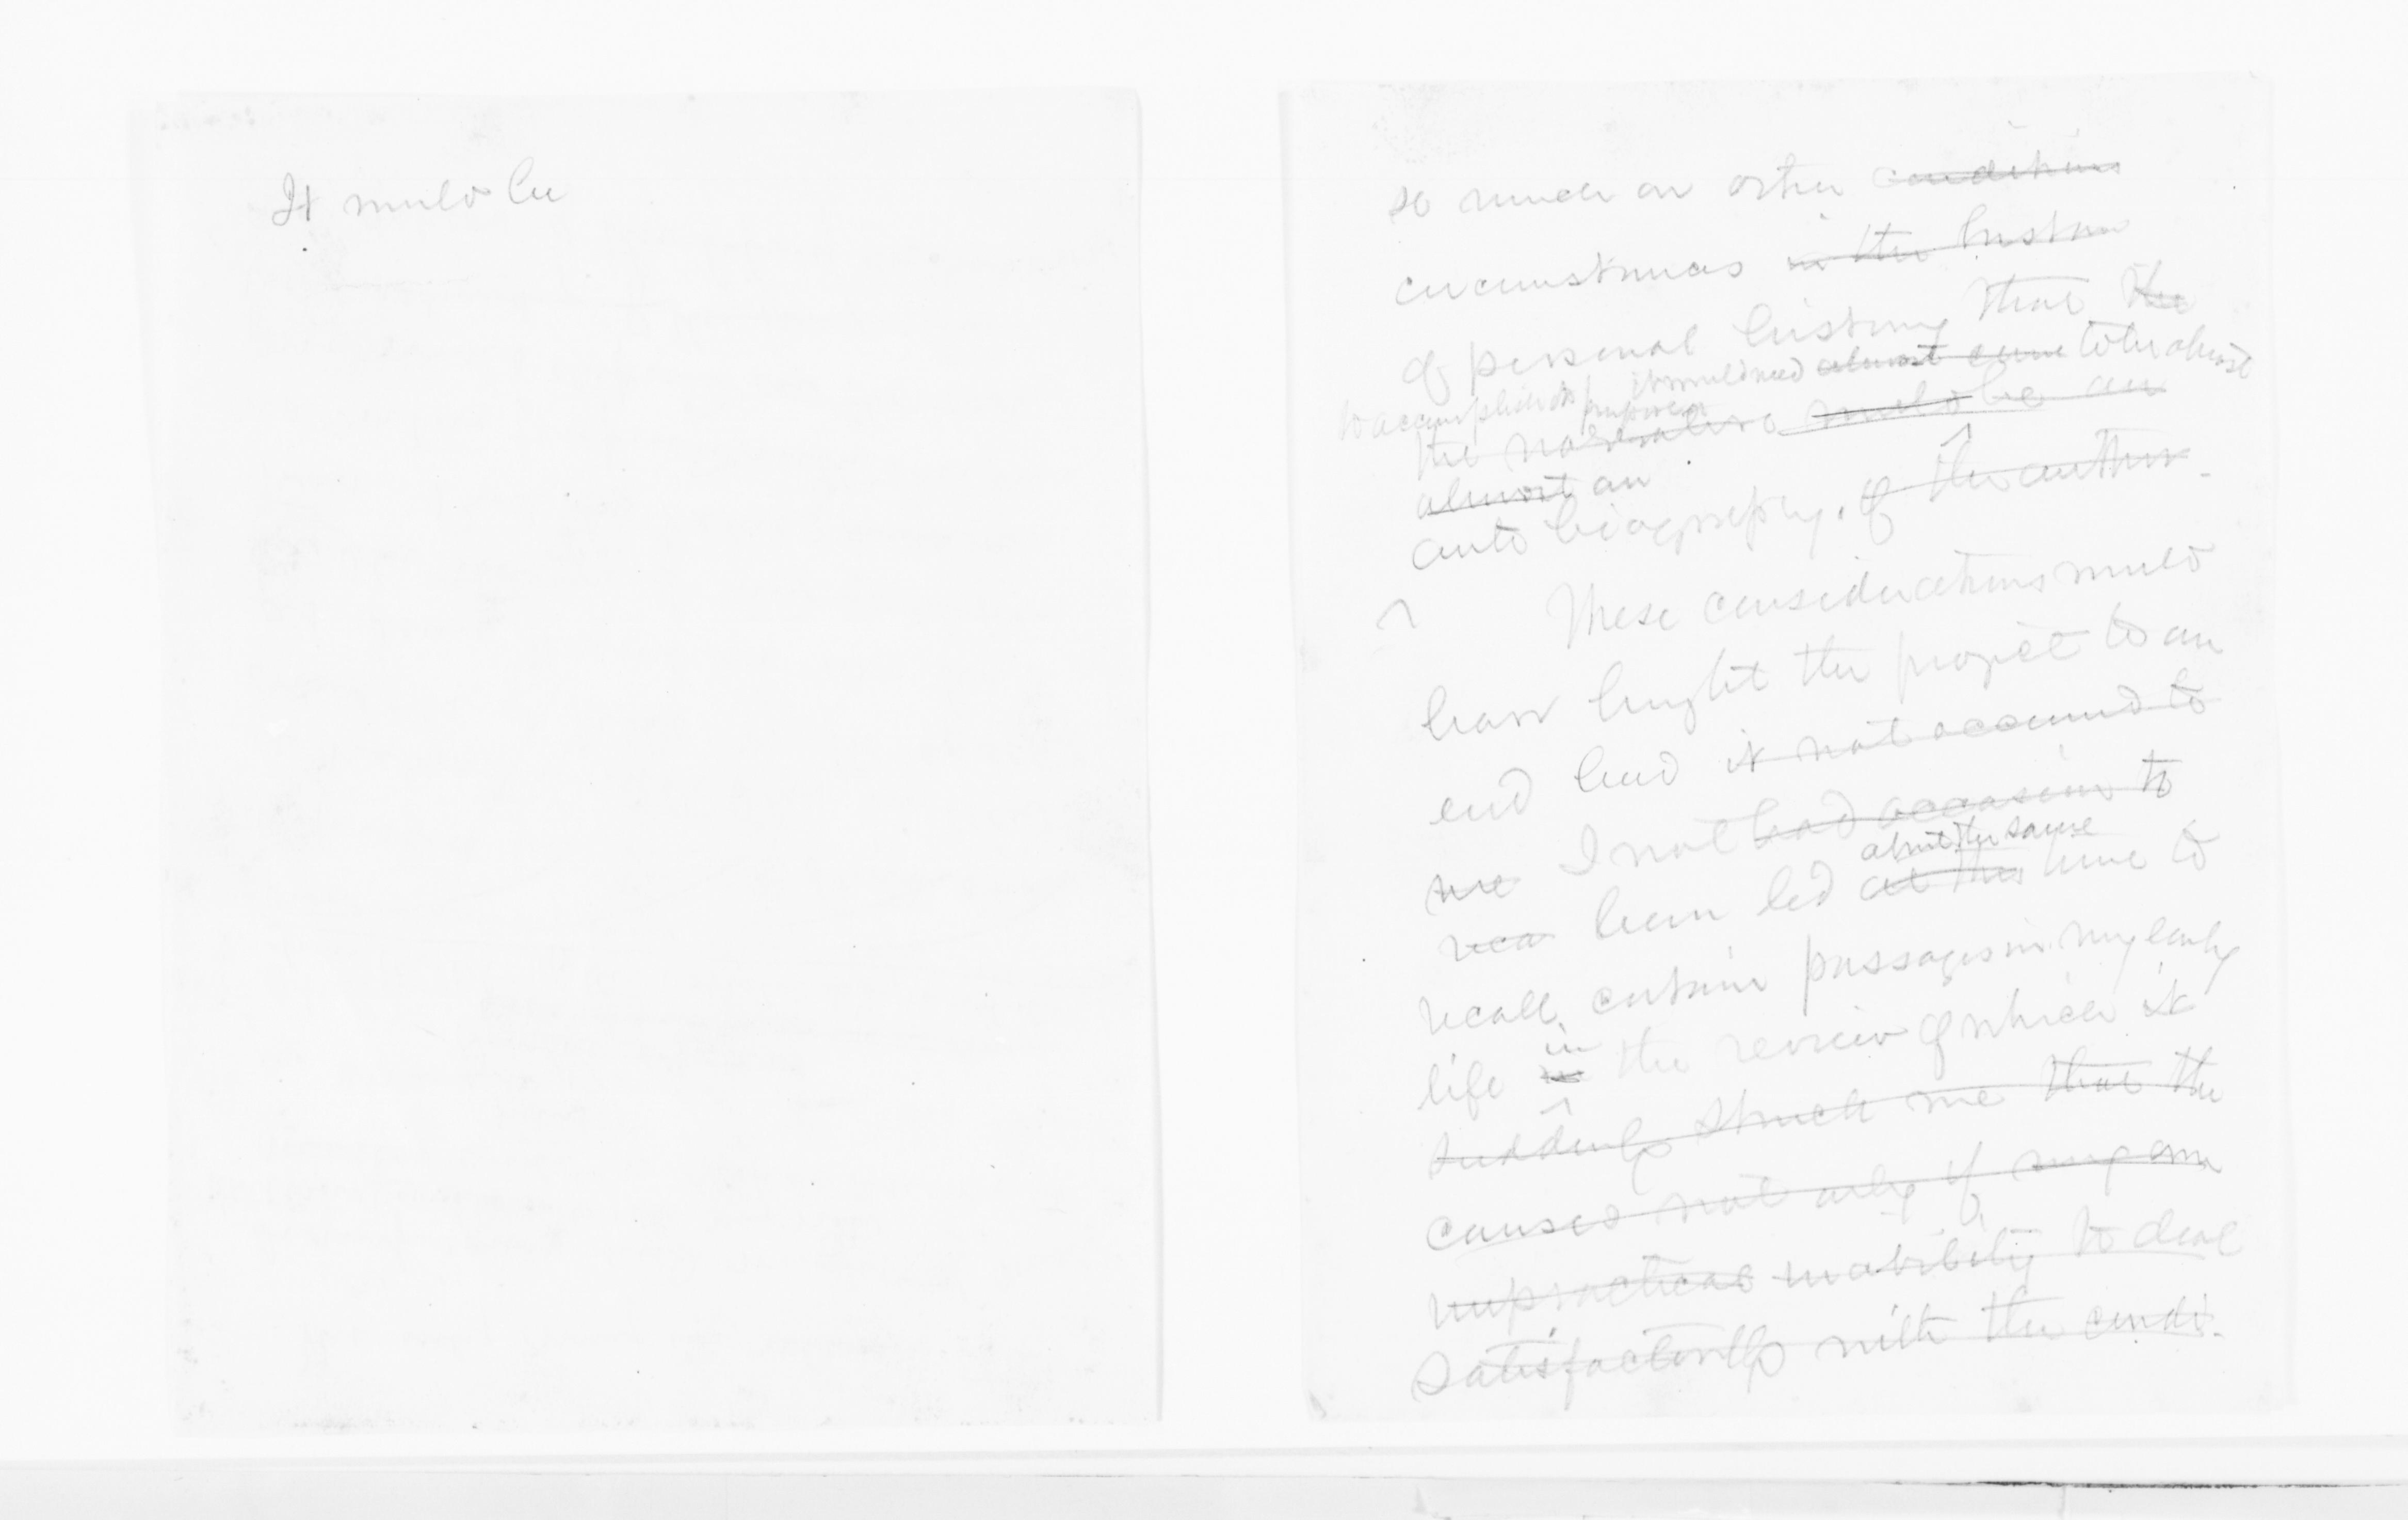 It would be
so much on other conditions
circumstances in the histor
of personal history that the
to accomplish its purpose it would need almost come to be almost
the narrative would be an
almost an
auto biography. of the author.
These considerations would
have brought the project to an
end had it not occurred to
me I not had occasion to
about the same
been led at this time to
recall certain passages in my early
in
life in the review of which it
suddenly struck me that the
causes not only of my own
impractical inability to deal
satisfactorily with the condi-